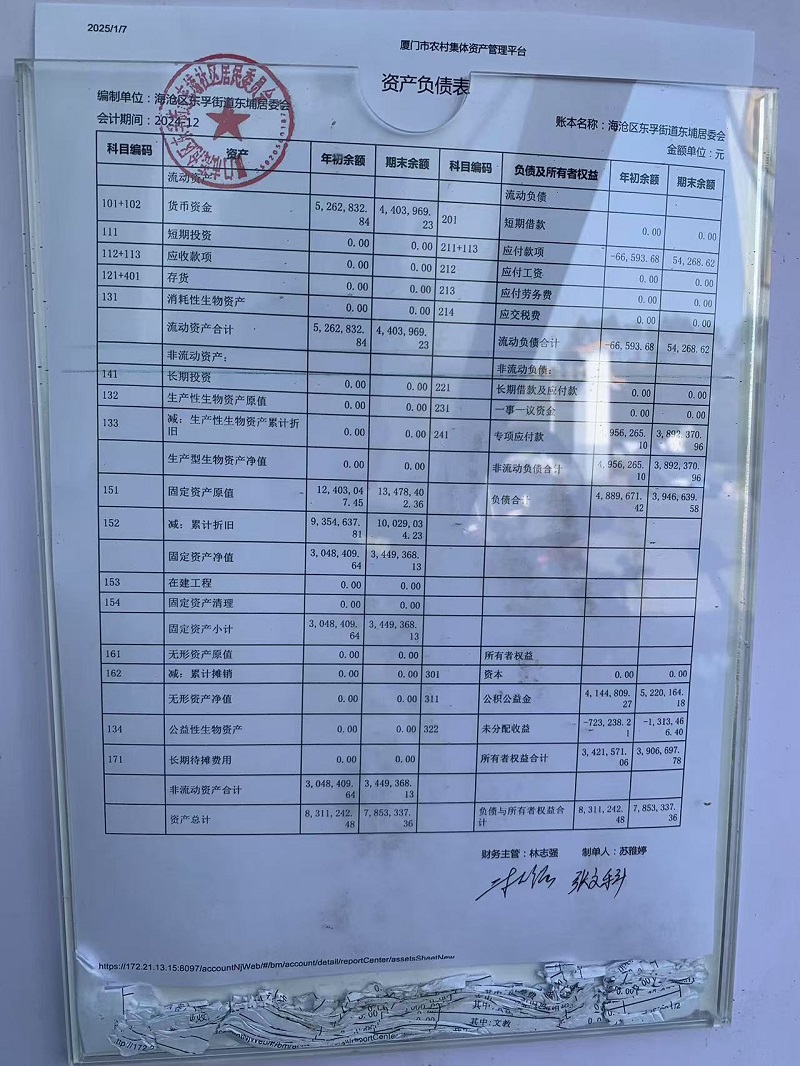 2025/1/7
厦门市农村集体资产管理平台
资产负债表
编制单位：海沧区东孚街道东埔居委会
会计期间：2024-12
账本名称：海沧区东孚街道东埔居委会
金额单位：元
科目编码 资产 年初余额 期末余额 科目编码 负债及所有者权益 年初余额 期末余额
流动资产： 流动负债
101+102 货币资金 5,262,832.84 4,403,969.23 201 短期借款 0.00 0.00
111 短期投资 0.00 0.00 211+113 应付款项 -66,593.68 54,268.62
112+113 应收款项 0.00 0.00 212 应付工资 0.00 0.00
121+401 存货 0.00 0.00 213 应付劳务费 0.00 0.00
131 消耗性生物资产 0.00 0.00 214 应交税费 0.00 0.00
流动资产合计 5,262,832.84 4,403,969.23 流动负债合计 -66,593.68 54,268.62
非流动资产： 非流动负债：
141 长期投资 0.00 0.00 221 长期借款及应付款 0.00 0.00
132 生产性生物资产原值 0.00 0.00 231 一事一议资金 0.00 0.00
133 减：生产性生物资产累计折旧 0.00 0.00 241 专项应付款 4,956,265.10 3,892,370.96
生产型生物资产净值 0.00 0.00 非流动负债合计 4,956,265.10 3,892,370.96
151 固定资产原值 12,403,047.45 13,478,402.36 负债合计 4,889,671.42 3,946,639.58
152 减：累计折旧 9,354,637.81 10,029,034.23
固定资产净值 3,048,409.64 3,449,368.13
153 在建工程 0.00 0.00
154 固定资产清理 0.00 0.00
固定资产小计 3,048,409.64 3,449,368.13
161 无形资产原值 0.00 0.00 所有者权益
162 减：累计摊销 0.00 0.00 301 资本 0.00 0.00
无形资产净值 0.00 0.00 311 公积公益金 4,144,809.27 5,220,164.18
134 公益性生物资产 0.00 0.00 322 未分配收益 -723,238.21 -1,313,466.40
171 长期待摊费用 0.00 0.00 所有者权益合计 3,421,571.06 3,906,697.78
非流动资产合计 3,048,409.64 3,449,368.13
资产总计 8,311,242.48 7,853,337.36 负债与所有者权益合计 8,311,242.48 7,853,337.36
财务主管：林志强 制单人：苏雅婷
https://172.21.13.15:8097/accountNjWeb/#/bm/account/detail/reportCenter/assetsSheetNew
其中:文教